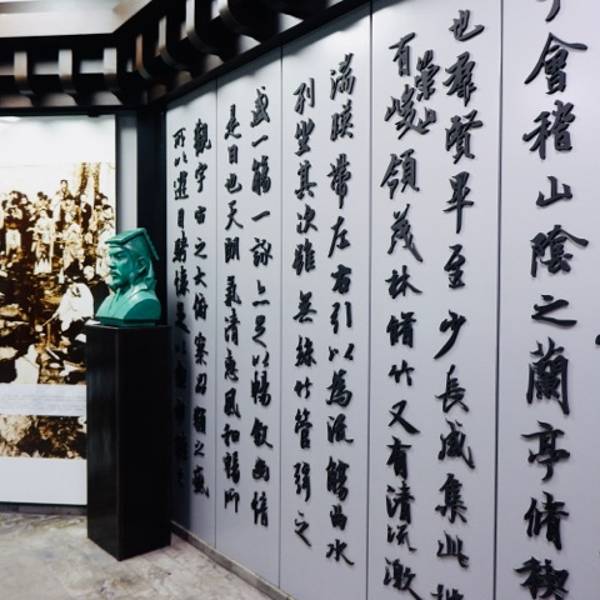 會稽山陰之蘭亭脩禊
也羣賢畢至少長咸集此地
有崇山峻領茂林脩竹又有清流激
湍暎帶左右引以為流觴曲水
列坐其次雖無絲竹管弦之
盛一觴一詠亦足以暢敘幽情
是日也天朗氣清惠風和暢仰
觀宇宙之大俯察品類之盛
所以遊目騁懷足以極視聽之